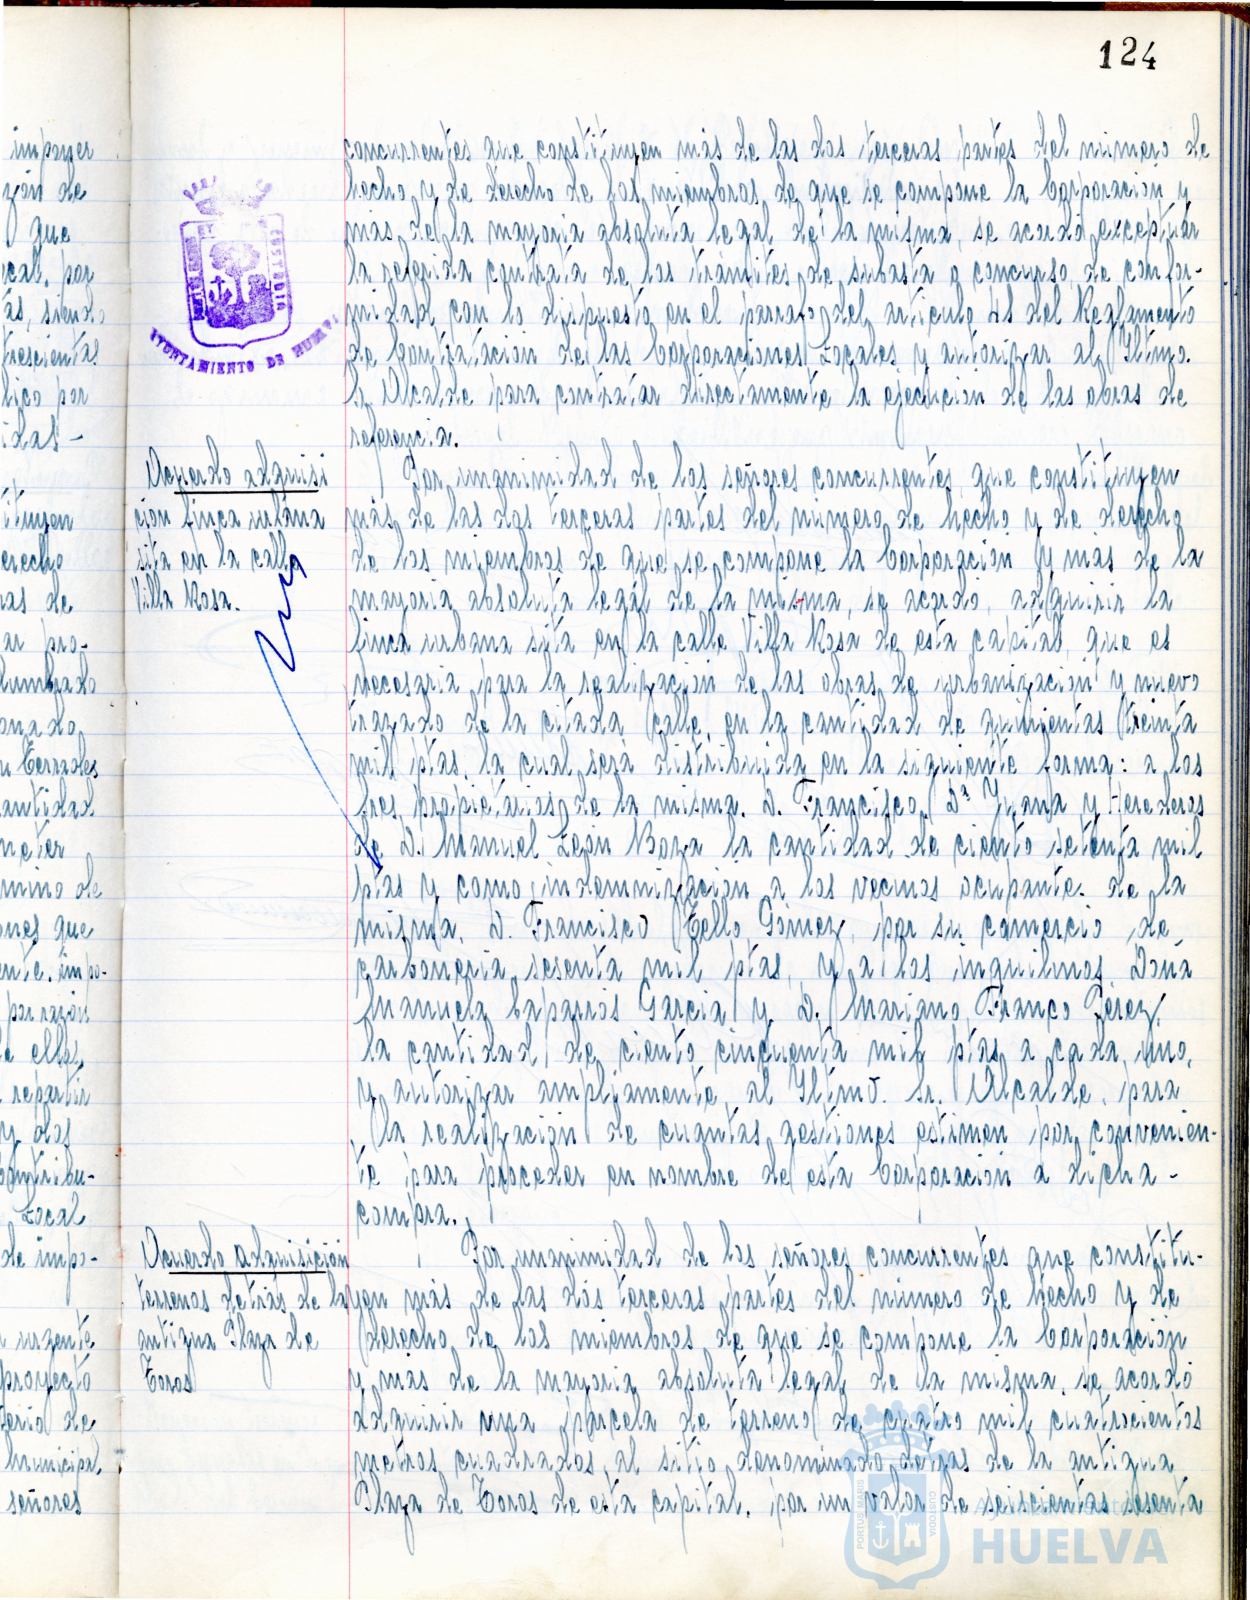 124
imponer
zón de
que
cal, por
ás, siendo
trescientas
lico por
idas-
tituyen
erecho
mas de
ar pro-
lumbrado
onado
antidad
meter
mino de
ones que
ente, impo-
por razón
la ella,
repartir
y dos
ontribu-
Local
de impo-
urgente
proyecto
terio de
municipal,
señores
AYUNTAMIENTO DE HUELVA
concurrentes que constituyen más de las dos terceras partes del número de
hecho y de derecho de los miembros de que se compone la Corporación y
más de la mayoría absoluta legal de la misma, se acordó exceptuar
la referida contrata de los trámites de subasta o concurso, de confor-
midad con lo dispuesto en el párrafo del artículo 41 del Reglamento
de Contratación de las Corporaciones Locales y autorizar al Iltmo.
Sr. Alcalde para contratar directamente la ejecución de las obras de
referencia.
Acuerdo adquisi
ción finca urbana
sita en la calle
Villa Rosa.
Por unanimidad de los señores concurrentes, que constituyen
más de las dos terceras partes del número de hecho y de derecho
de los miembros de que se compone la Corporación y más de la
mayoría absoluta legal de la misma, se acordó, adquirir la
finca urbana sita en la calle Villa Rosa de esta capital, que es
necesaria para la realización de las obras de urbanización y nuevo
trazado de la citada calle, en la cantidad de quinientas treinta
mil ptas. la cual será distribuida en la siguiente forma: a los
tres propietarios de la misma. D. Francisco, Dª Juana y Herederos
de D. Manuel León Borza la cantidad de ciento setenta mil
ptas y como indemnización a los vecinos ocupante. de la
misma, D. Francisco Tello Gómez, por su comercio de
carbonería sesenta mil ptas, y a los inquilinos Doña
Manuela Caparrós García y D. Mariano Franco Pérez,
la cantidad de ciento cincuenta mil ptas a cada uno,
y autorizar ampliamente al Iltmo. Sr. Alcalde, para
la realización de cuantas gestiones estimen por convenien-
te para proceder en nombre de esta Corporación a dicha -
compra.
Acuerdo adquisición
terrenos detrás de la
antigua Plaza de
Toros
Por unanimidad de los señores concurrentes que constitu-
yen más de las dos terceras partes del número de hecho y de
derecho de los miembros de que se compone la Corporación
y más de la mayoría absoluta legal de la misma, se acordó
adquirir una parcela de terreno de cuatro mil cuatrocientos
metros cuadrados, al sitio denominado detrás de la antigua
Plaza de Toros de esta capital, por un valor de seiscientas sesenta
PORTUS MARIS
CUSTODIA
HUELVA